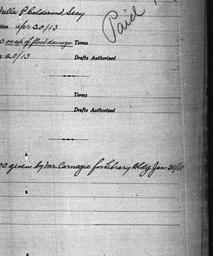 Paid
Apr 30/13
map of flood damage Terms
20/13 Drafts Authorized
Terms
Drafts Authorized
given by Mr. Carnegie for Library Bldg Jan 31/11